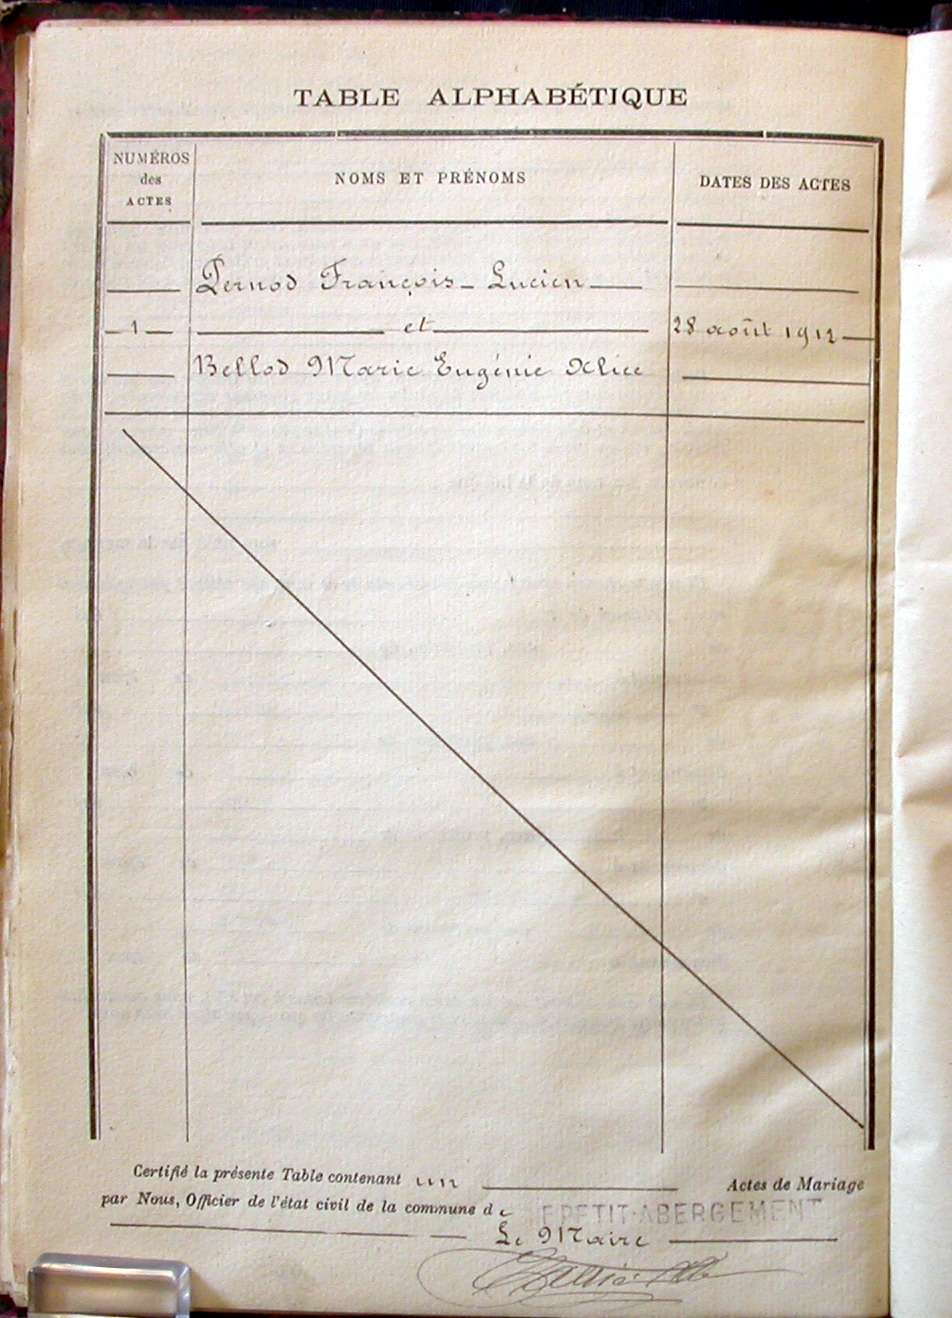 TABLE ALPHABÉTIQUE
NUMÉROS
des
ACTES
NOMS ET PRÉNOMS
DATES DES ACTES
Pernod François-Lucien
1 et 28 août 1912
Bellod Marie Eugénie Alice
Certifié la présente Table contenant un Actes de Mariage
par Nous, Officier de l'état civil de la commune de PETIT-ABERGEMENT
Le Maire